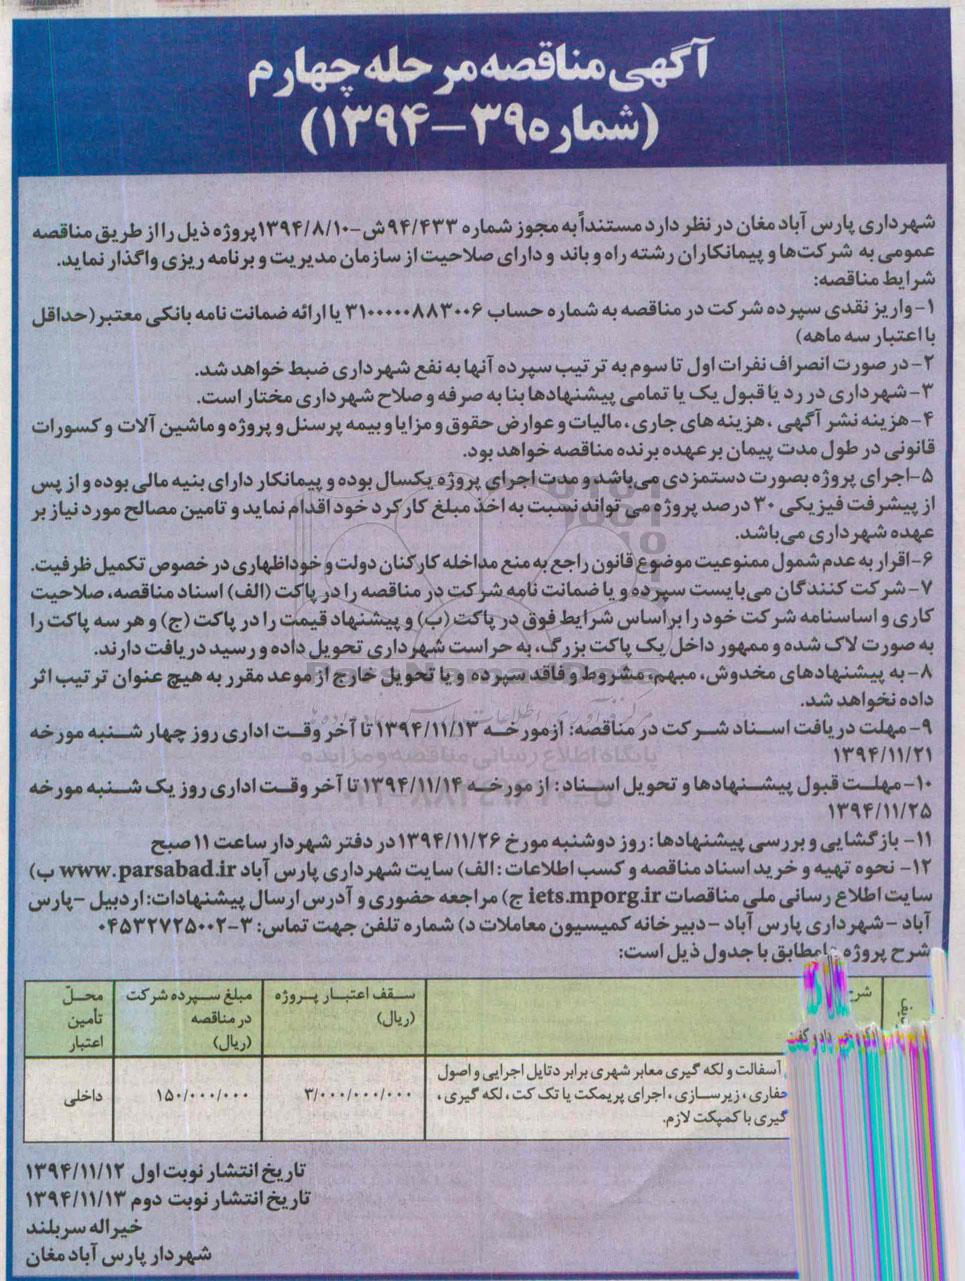 آگهی مناقصه مرحله چهارم
(شماره ۳۹–۱۳۹۴)
شهرداری پارس آباد مغان در نظر دارد مستنداً به مجوز شماره ۹۴/۴۳۳ش-۱۳۹۴/۸/۱۰پروژه ذیل را از طریق مناقصه
عمومی به شرکت‌ها و پیمانکاران رشته راه و باند و دارای صلاحیت از سازمان مدیریت و برنامه ریزی واگذار نماید.
شرایط مناقصه:
۱-واریز نقدی سپرده شرکت در مناقصه به شماره حساب ۳۱۰۰۰۰۰۸۸۳۰۰۶ یا ارائه ضمانت نامه بانکی معتبر(حداقل
با اعتبار سه ماهه)
۲-در صورت انصراف نفرات اول تا سوم به ترتیب سپرده آنها به نفع شهرداری ضبط خواهد شد.
۳-شهرداری در رد یا قبول یک یا تمامی پیشنهادها بنا به صرفه و صلاح شهرداری مختار است.
۴-هزینه نشر آگهی ، هزینه های جاری، مالیات و عوارض حقوق و مزایا و بیمه پرسنل و پروژه و ماشین آلات و کسورات
قانونی در طول مدت پیمان بر عهده برنده مناقصه خواهد بود.
۵-اجرای پروژه بصورت دستمزدی می‌باشد و مدت اجرای پروژه یکسال بوده و پیمانکار دارای بنیه مالی بوده و از پس
از پیشرفت فیزیکی ۳۰ درصد پروژه می تواند نسبت به اخذ مبلغ کارکرد خود اقدام نماید و تامین مصالح مورد نیاز بر
عهده شهرداری می‌باشد.
۶-اقرار به عدم شمول ممنوعیت موضوع قانون راجع به منع مداخله کارکنان دولت و خوداظهاری در خصوص تکمیل ظرفیت.
۷-شرکت کنندگان می‌بایست سپرده و یا ضمانت نامه شرکت در مناقصه را در پاکت (الف) اسناد مناقصه، صلاحیت
کاری و اساسنامه شرکت خود را براساس شرایط فوق در پاکت (ب) و پیشنهاد قیمت را در پاکت (ج) و هر سه پاکت را
به صورت لاک شده و ممهور داخل یک پاکت بزرگ، به حراست شهرداری تحویل داده و رسید دریافت دارند.
۸- به پیشنهادهای مخدوش، مبهم، مشروط و فاقد سپرده و یا تحویل خارج از موعد مقرر به هیچ عنوان ترتیب اثر
داده نخواهد شد.
۹- مهلت دریافت اسناد شرکت در مناقصه: ازمورخه ۱۳۹۴/۱۱/۱۳ تا آخر وقت اداری روز چهار شنبه مورخه
۱۳۹۴/۱۱/۲۱
۱۰- مهلت قبول پیشنهادها و تحویل اسناد: از مورخه ۱۳۹۴/۱۱/۱۴ تا آخر وقت اداری روز یک شنبه مورخه
۱۳۹۴/۱۱/۲۵
۱۱- بازگشایی و بررسی پیشنهادها: روز دوشنبه مورخ ۱۳۹۴/۱۱/۲۶در دفتر شهردار ساعت ۱۱صبح
۱۲- نحوه تهیه و خرید اسناد مناقصه و کسب اطلاعات : الف) سایت شهرداری پارس آباد www.parsabad.ir ب)
سایت اطلاع رسانی ملی مناقصات iets.mporg.ir ج) مراجعه حضوری و آدرس ارسال پیشنهادات: اردبیل -پارس
آباد -شهرداری پارس آباد - دبیرخانه کمیسیون معاملات د) شماره تلفن جهت تماس: ۳-۰۴۵۳۲۷۲۵۰۰۲
شرح پروژه مطابق با جدول ذیل است:
شرح
سقف اعتبار پروژه
(ریال)
مبلغ سپرده شرکت
در مناقصه
(ریال)
محلّ
تأمین
اعتبار
آسفالت و لکه گیری معابر شهری برابر دتایل اجرایی و اصول
حفاری، زیرسازی، اجرای پریمکت یا تک کت، لکه گیری،
گیری با کمپکت لازم.
۳/۰۰۰/۰۰۰/۰۰۰
۱۵۰/۰۰۰/۰۰۰
داخلی
تاریخ انتشار نوبت اول ۱۳۹۴/۱۱/۱۲
تاریخ انتشار نوبت دوم ۱۳۹۴/۱۱/۱۳
خیراله سربلند
شهردار پارس آباد مغان
پایگاه اطلاع رسانی مناقصه و مزایده